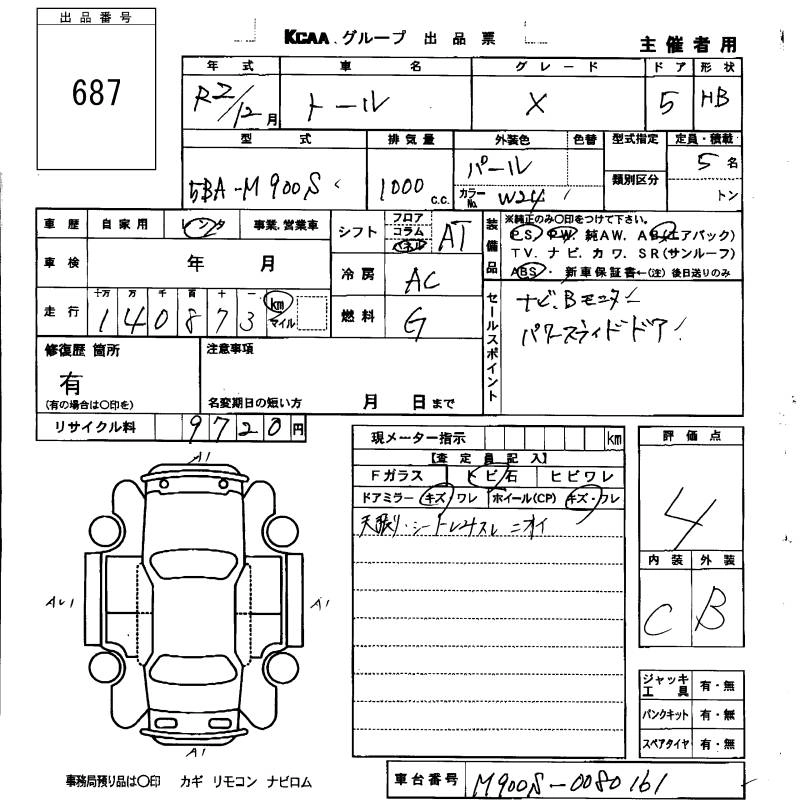 出品番号
687
KCAA グループ 出品票
主催者用
年式 車名 グレード ドア 形状
R2/12月 トール X 5 HB
型式 排気量 外装色 色替 型式指定 定員・積載
5BA-M900S 1000 c.c. パール 5名
カラーNo. W24 類別区分 トン
車歴 自家用 レンタ 事業、営業車
シフト フロア コラム パネル AT
装備品 ※純正のみ○印をつけて下さい。
PS. PW. 純AW. AB(エアバック)
TV. ナビ. カワ. SR(サンルーフ)
ABS. 新車保証書←(注) 後日送りのみ
車検 年 月
冷房 AC
走行 十万 万 千 百 十 一
140873 km マイル
燃料 G
セールスポイント
ナビ、Bモニター
パワースライドドア
修復歴 箇所 注意事項
有
(有の場合は○印を) 名変期日の短い方 月 日まで
リサイクル料 9720円
現メーター指示 km
評価点
【査定員記入】
Fガラス トビ石 ヒビワレ
ドアミラー キズ・ワレ ホイール(CP) キズ・ワレ
天張り・シート 
ニオイ
4
内装 外装
C B
A1
A1
A1
ジャッキ工具 有・無
パンクキット 有・無
スペアタイヤ 有・無
事務局預り品は○印 カギ リモコン ナビロム
車台番号 M900S-0080161